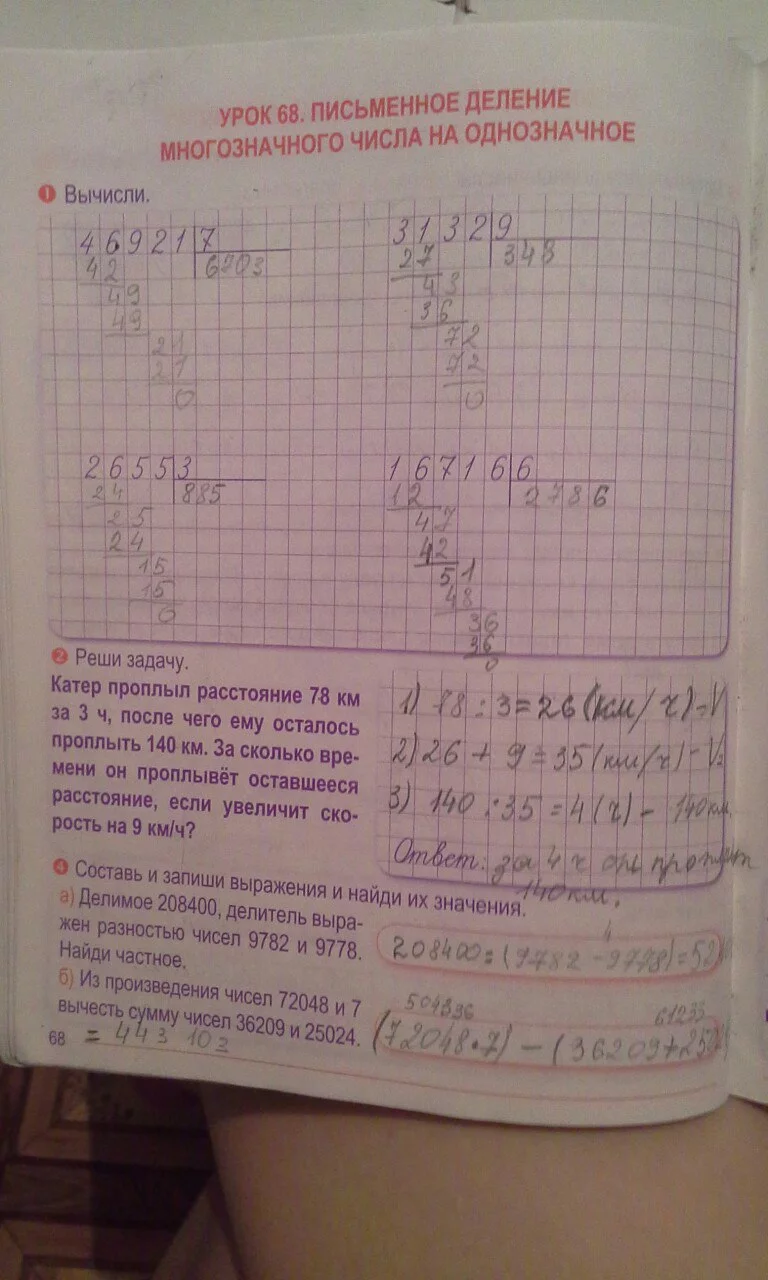 УРОК 68. ПИСЬМЕННОЕ ДЕЛЕНИЕ
МНОГОЗНАЧНОГО ЧИСЛА НА ОДНОЗНАЧНОЕ
1 Вычисли.
46921 7
42 6703
49
49
21
21
0
31329 9
27 348
43
36
72
72
0
2655 3
24 885
25
24
15
15
0
16716 6
12 2786
47
42
51
48
36
36
0
2 Реши задачу.
Катер проплыл расстояние 78 км
за 3 ч, после чего ему осталось
проплыть 140 км. За сколько вре-
мени он проплывёт оставшееся
расстояние, если увеличит ско-
рость на 9 км/ч?
1) 78 : 3 = 26 (км/ч) - V
2) 26 + 9 = 35 (км/ч) - V2
3) 140 : 35 = 4 (ч) - 140 км.
Ответ: за 4 ч
140 км.
4 Составь и запиши выражения и найди их значения.
а) Делимое 208400, делитель выра-
жен разностью чисел 9782 и 9778.
Найди частное.
4
208400 : (9782 - 9778) = 52
б) Из произведения чисел 72048 и 7
вычесть сумму чисел 36209 и 25024.
504336 61233
(72048 · 7) - (36209 + 25
68 = 443 103